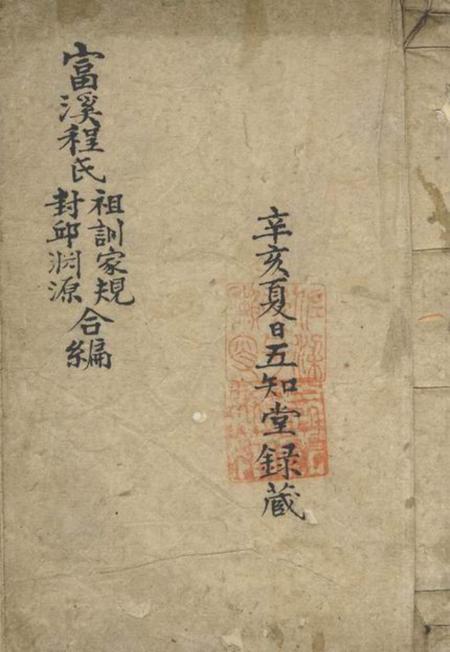 辛亥夏日五知堂録藏
富溪程氏
祖訓家規
封邱渊源
合編